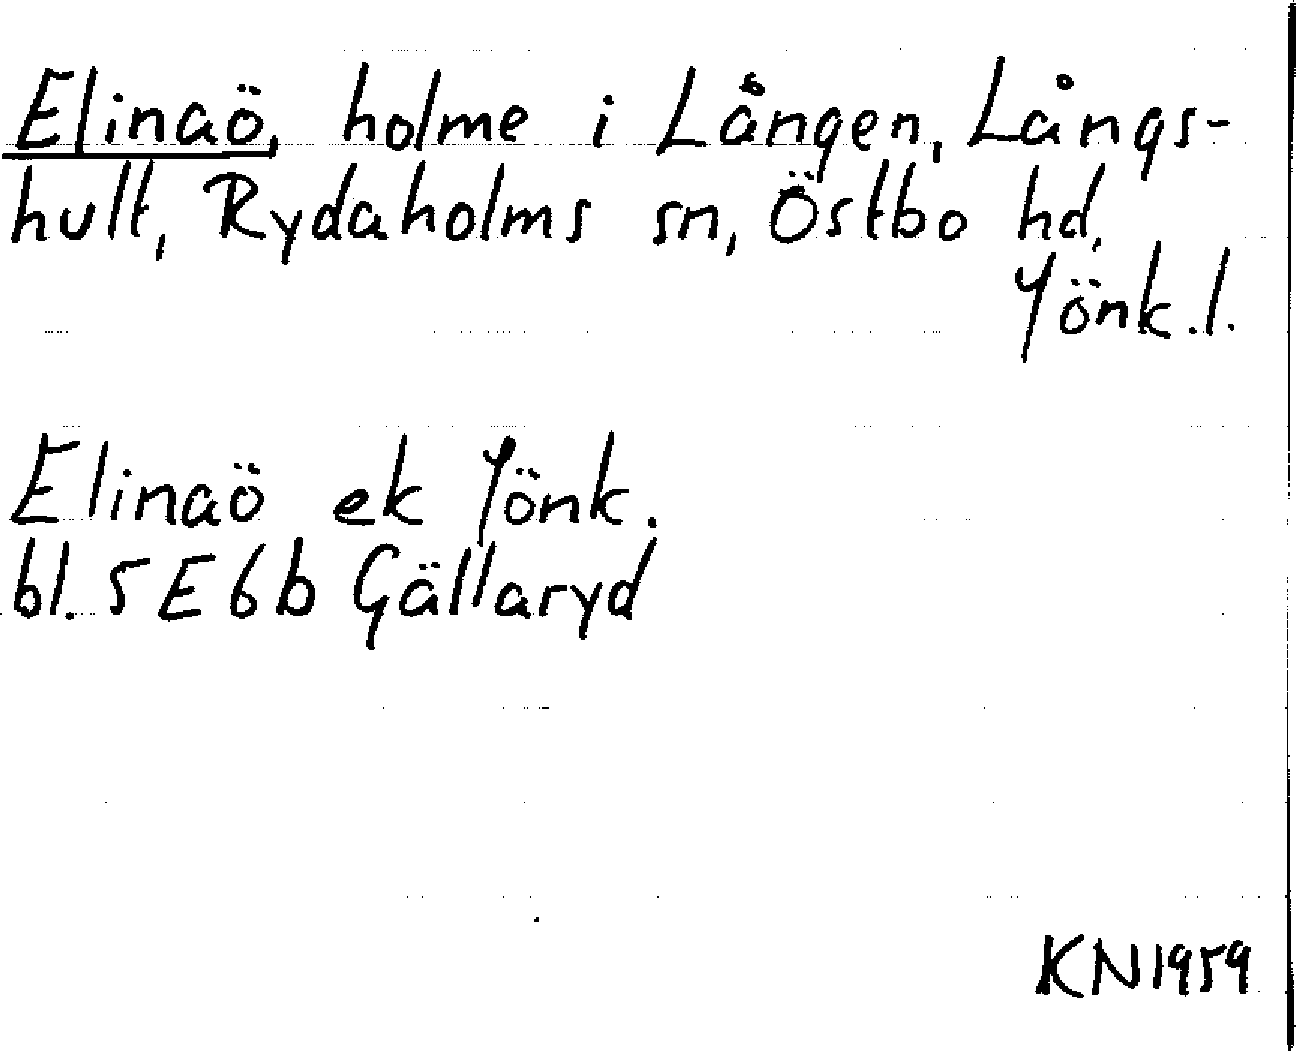 Elinaö, holme i Lången, Långs-
hult, Rydaholms sn, Östbo hd,
Jönk.l.
Elinaö ek Jönk.
bl. 5E6b Gällaryd
KN1959